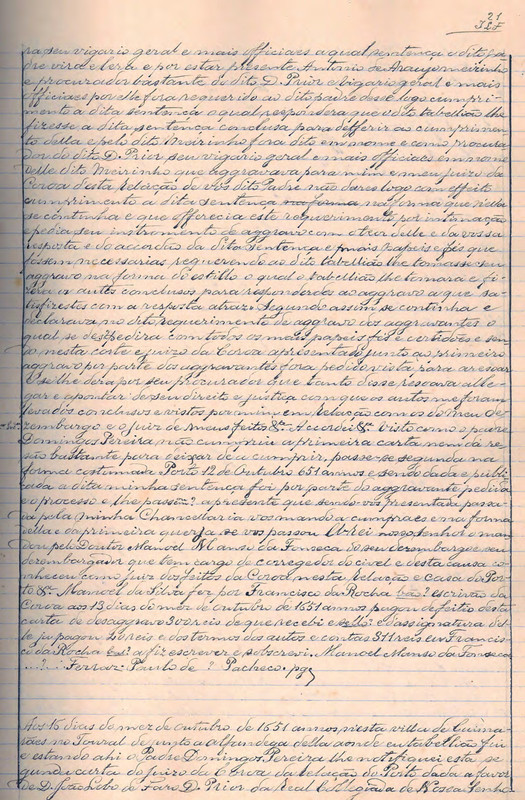 21
ra seu vigario geral e mais officiaes a qual sentença o dito pa-
dre vira e lera e por estar presente Antonio de Araujo meirinho
e procurador bastante do dito D. Prior e vigario geral e mais
officiaes por elle fora requerido ao dito padre desse logo cumpri-
mento a dita sentença o qual respondera que o dito tabellião lhe
fizesse a dita sentença conclusa para defferir ao cumprimen-
to della e pelo dito Meirinho fora dito em nome e como procura-
dor do dito D. Prior seu vigario geral e mais officiaes em nome
delle dito Meirinho que aggravava para mim e meu juizo da
Coroa desta Relação de vós dito Padre não dares logo com effeito
cumprimento a dita sentença na forma na forma que nella
se continha e que offerecia este requerimento por intimação
e pedia seu instrumento de aggravo com o teor delle e da vossa
resposta e do accordão da dita Sentença e mais papeis e fés que
fossem necessarias requerendo ao dito tabellião lhe tomasse seu
aggravo na forma do estillo o qual o tabellião lhe tomara e fi-
zera os autos conclusos para responderdes ao aggravo a que sa-
tisfizestes com a resposta atraz. Segundo assim se continha e
declarava no dito requerimento de aggravo dos aggravantes o
qual se despedira com todos os mais papeis fés e certidões e sen-
do nesta corte e juizo da Coroa apresentado junto ao primeiro
aggravo por parte dos aggravantes fora pedido vista para aresoar
e se lhe dera por seu procurador que tanto disse resoava alle-
gar e apontar de seu direito e justiça com que os autos me foram
levados conclusos e vistos por mim em Relação com os do meu de-
zembargo e o juiz de meus feitos &ª Accordei &ª Visto como o padre
Domingos Pereira não cumpriu a primeira carta nem dá re-
são bastante para deixar de a cumprir, passe-se segunda na
forma costumada Porto 12 de Outubro 651 annos e sendo dada e publi-
cada a dita minha sentença foi por parte do aggravante pedida
e o processo e lhe passão? a presente que sendo-vos presentada passa-
da pela minha Chancellaria vos mando a cumpraes e na forma
della e da primeira queija se vos passou el-rei nosso senhor o man-
dou pelo Doutor Manoel Manso da Fonseca do seu desembargo e seu
desembargador que tem cargo de corregedor do civel e desta causa co-
nheceu como juiz dos feitos da Coroa nesta Relação e casa do Por-
to &ª Manoel da Silva fez por Francisco da Rocha escrivão da
Coroa aos 13 dias do mez de outubro de 1651 annos pagou de feitio desta
carta de desaggravo 300 reis de que recebi e da assignatura del-
le já pagou 40 reis e dos termos dos autos e contas 811 reis eu Francis-
co da Rocha a fiz escrever e sobscrevi. Manoel Manso da Fonseca
...? Ferraz. Paulo de ? Pacheco. pg
Aos 15 dias do mez de outubro de 1651 annos n'esta villa de Guima-
rães no Toural de junto a Alfandega della aonde eu tabellião fui
e estando ahi o Padre Domingos Pereira lhe notifiquei esta se-
gunda carta do juizo da Coroa da relação do Porto dada a favor
de D. João Lobo de Faro D. Prior da Real Collegiada de Nossa Senho-